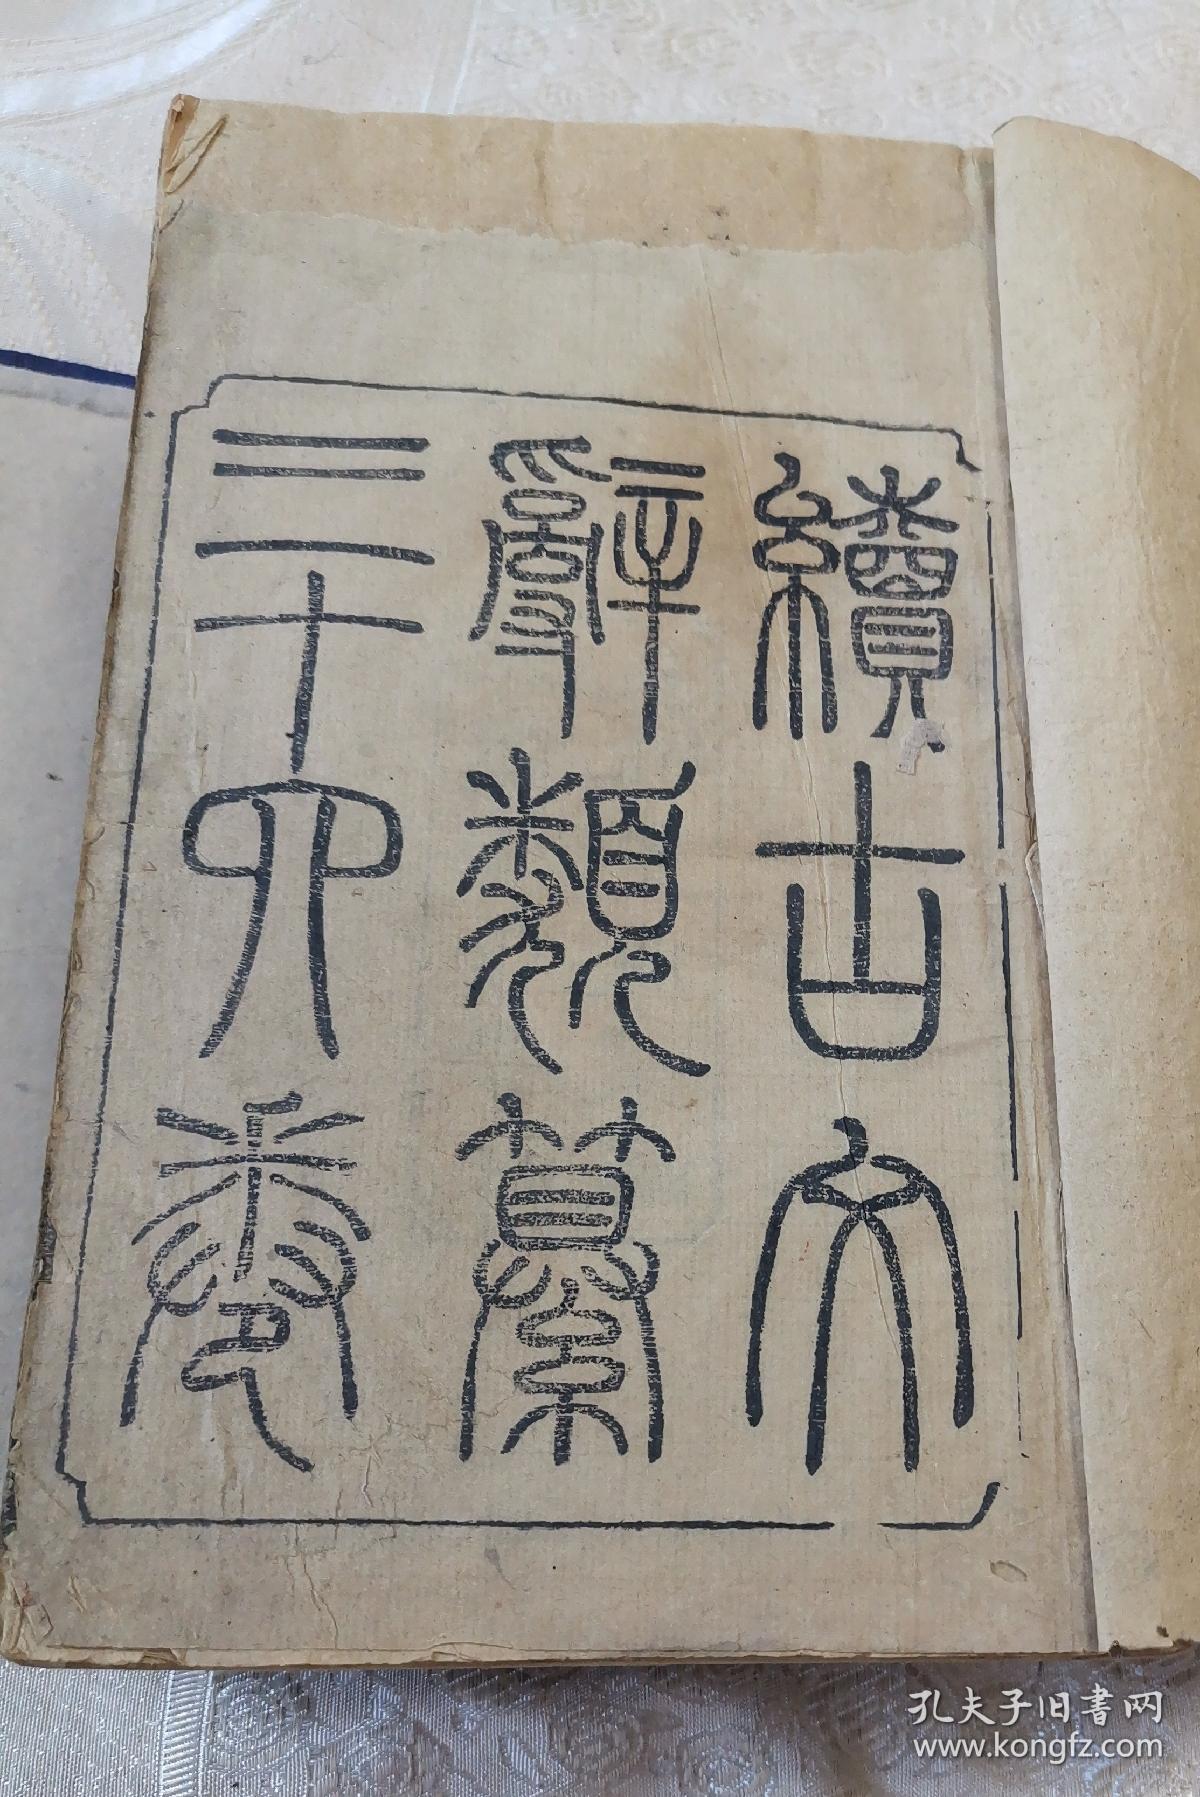 續古文
辭類纂
三十四卷
孔夫子旧書网
www.kongfz.com